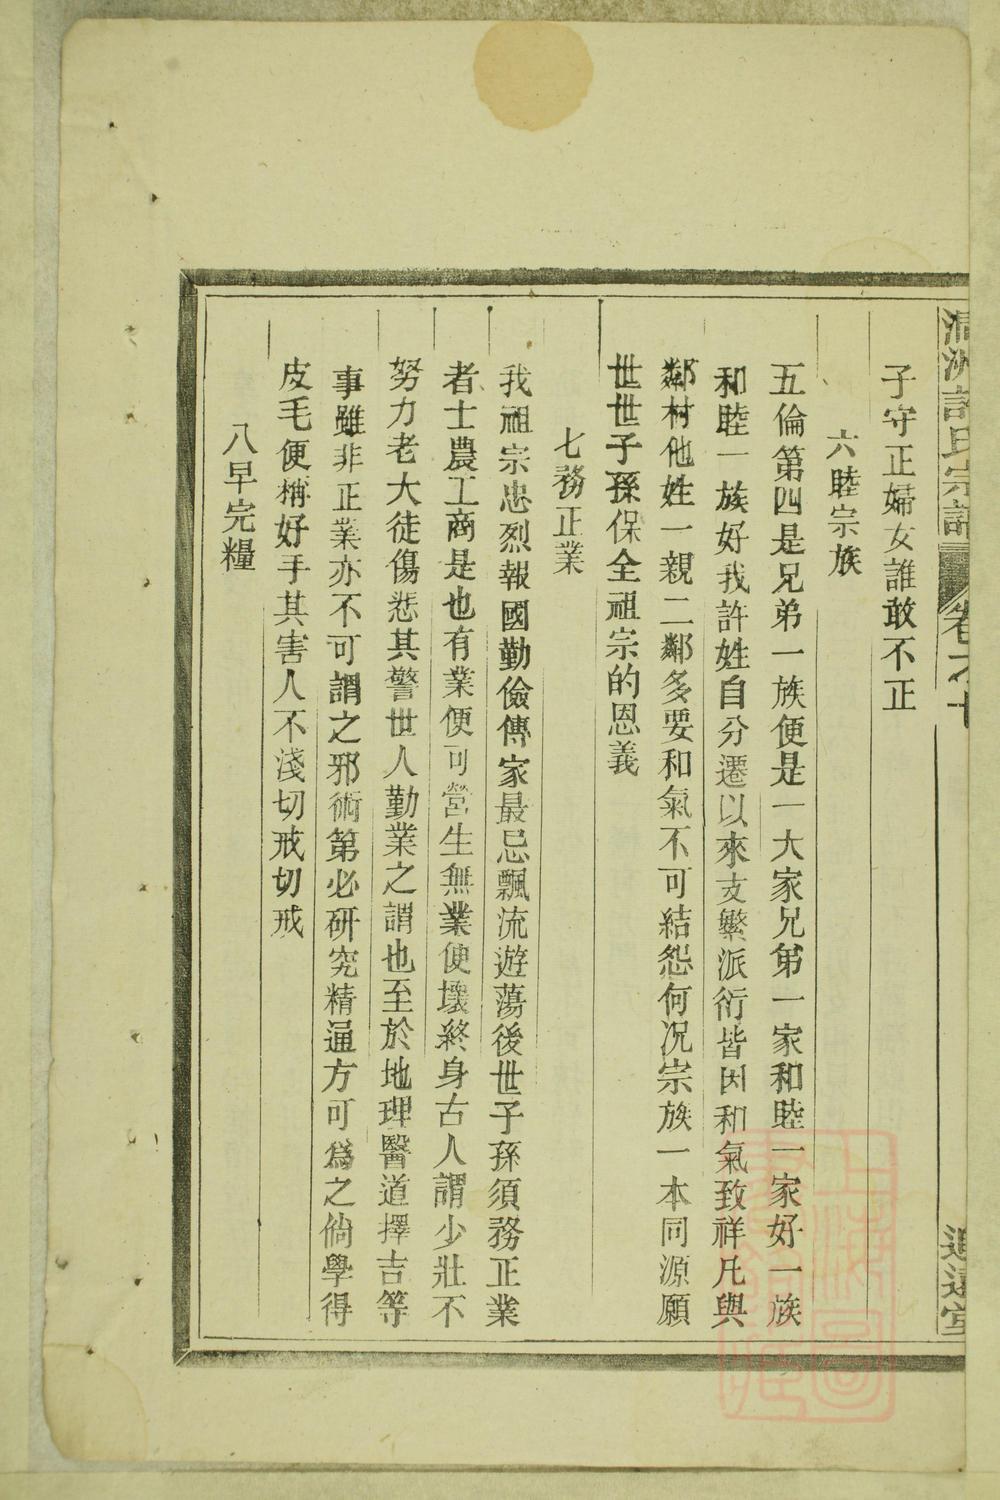 子守正婦女誰敢不正
六睦宗族
五倫第四是兄弟一族便是一大家兄弟一家和睦一家好一族
和睦一族好我許姓自分遷以來支繁派衍皆因和氣致祥凡與
鄰村他姓一親二鄰多要和氣不可結怨何况宗族一本同源願
世世子孫保全祖宗的恩義
七務正業
我祖宗忠烈報國勤儉傳家最忌飄流遊蕩後世子孫須務正業
者士農工商是也有業便可營生無業便壞終身古人謂少壯不
努力老大徒傷悲其警世人勤業之謂也至於地理醫道擇吉等
事雖非正業亦不可謂之邪術第必研究精通方可爲之倘學得
皮毛便稱好手其害人不淺切戒切戒
八早完糧
許氏宗譜
卷
追遠堂
上海圖書館藏